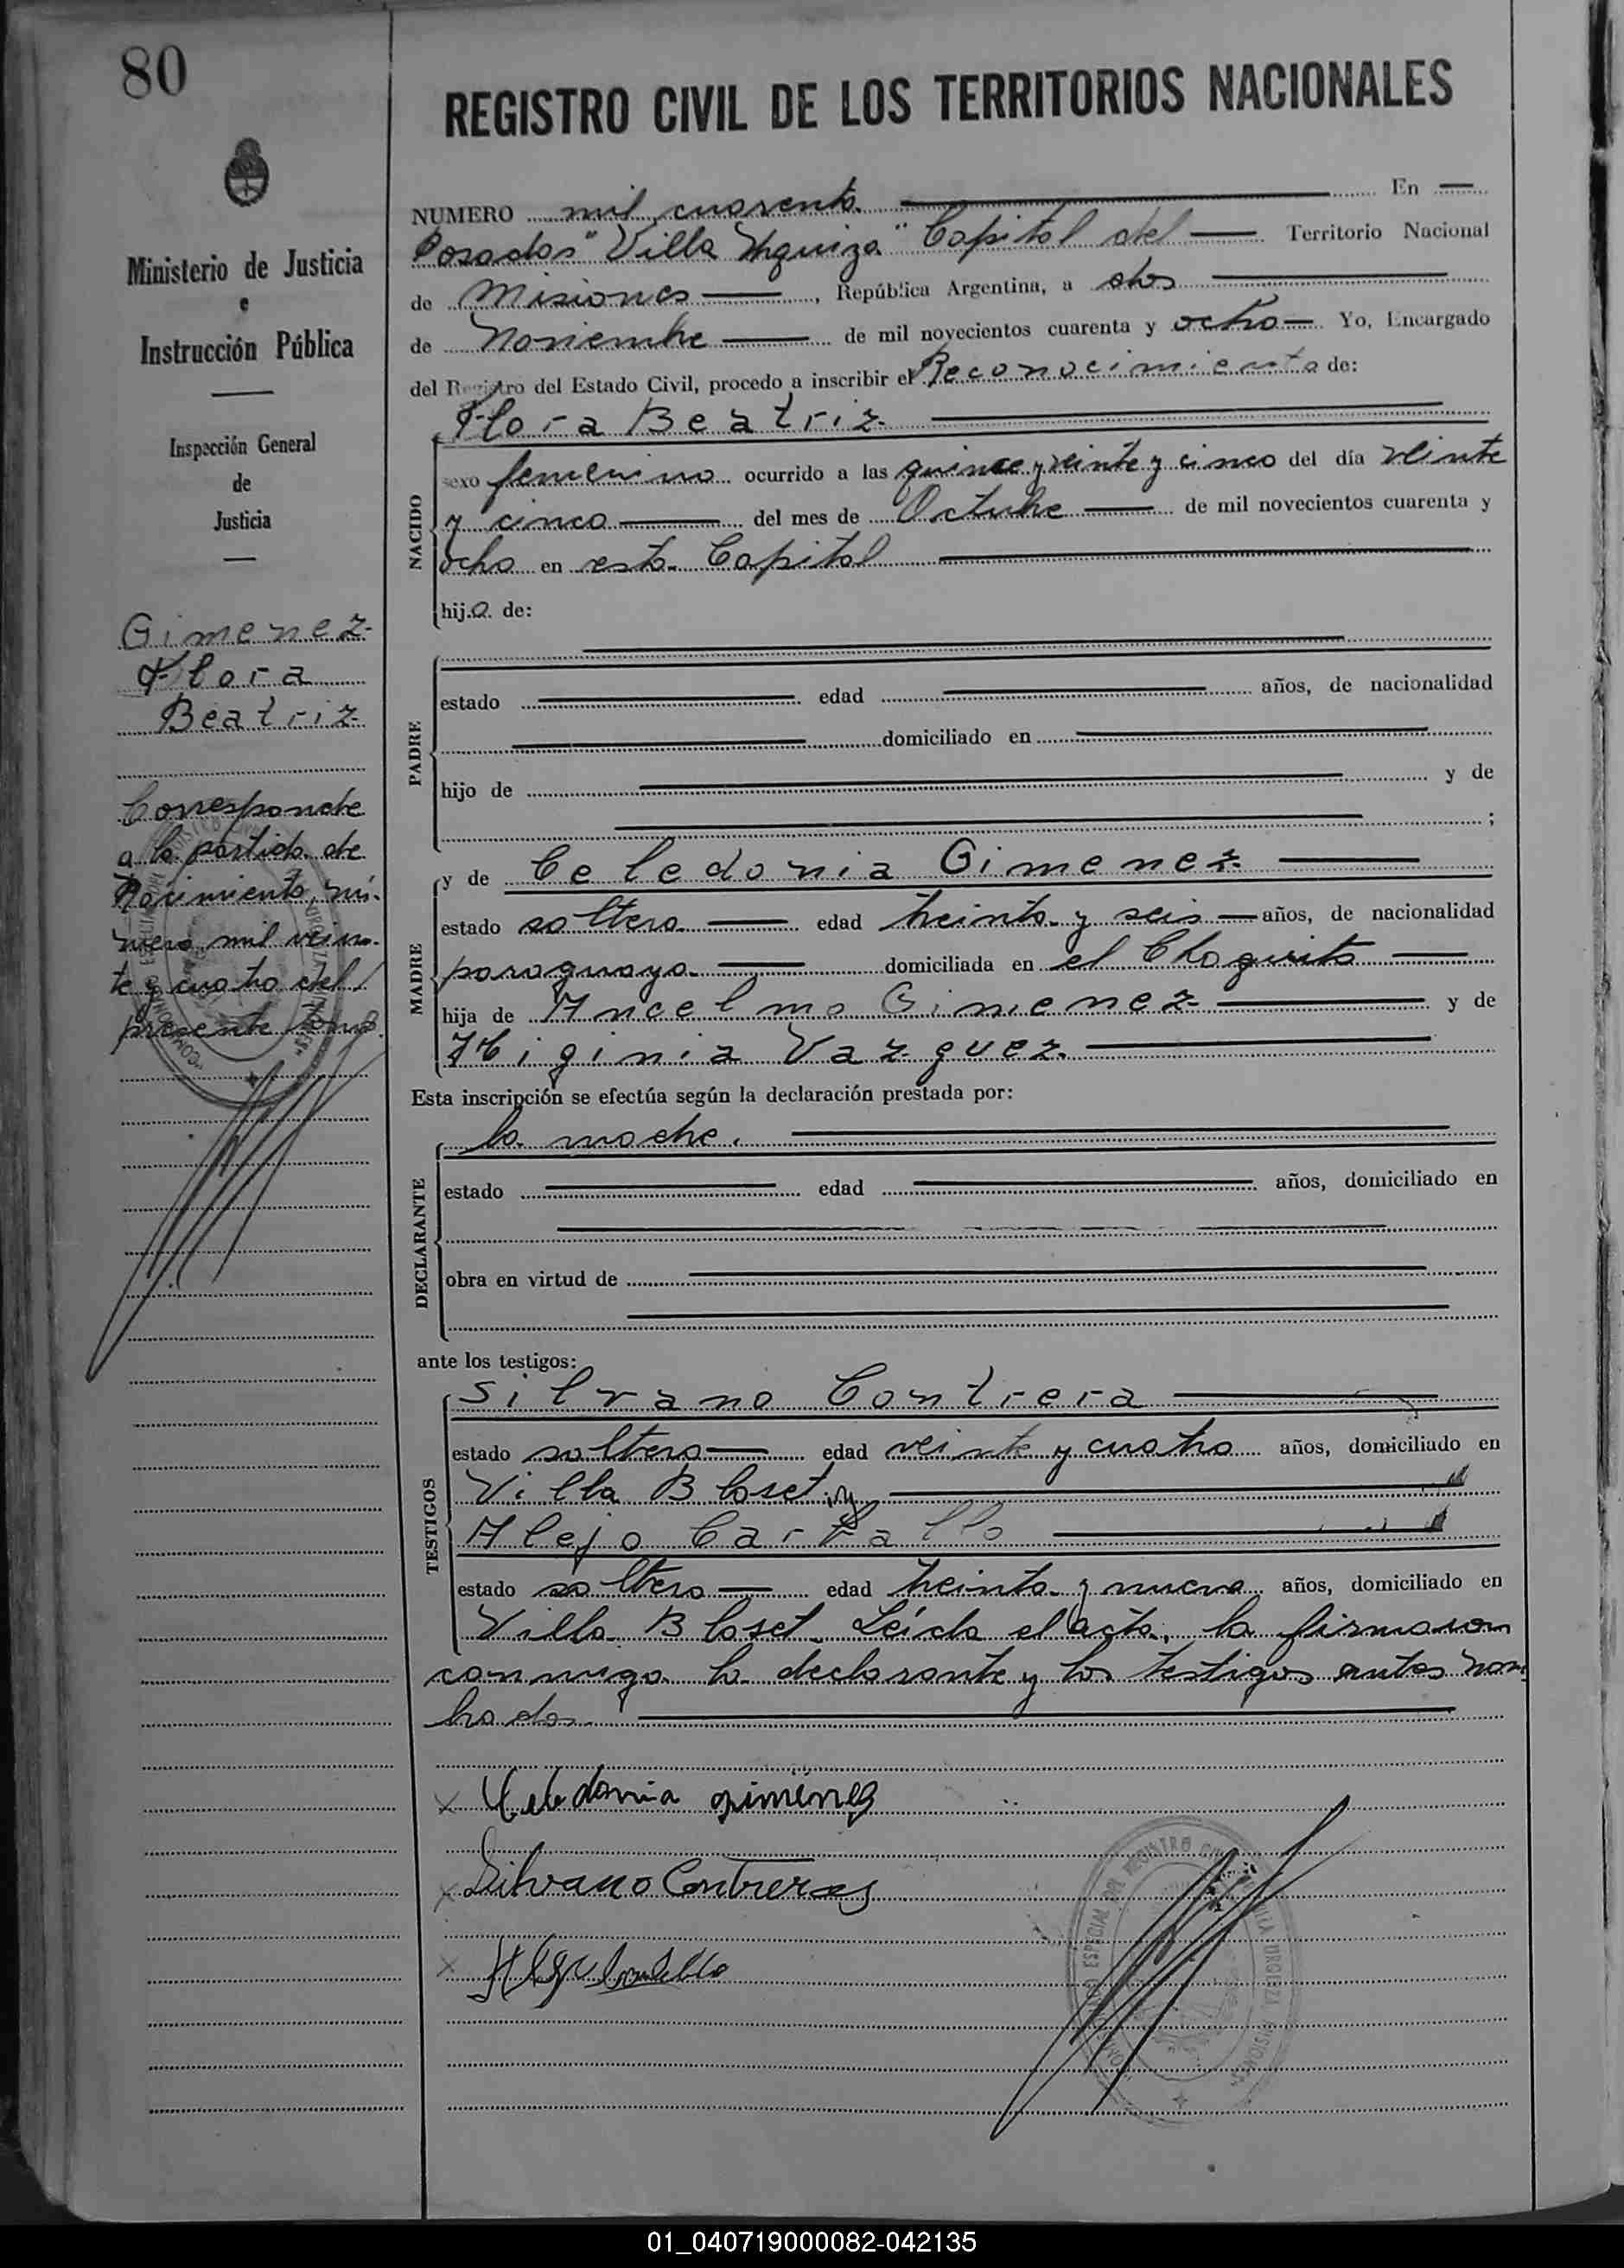 80
REGISTRO CIVIL DE LOS TERRITORIOS NACIONALES
Ministerio de Justicia
e
Instrucción Pública
Inspección General
de
Justicia
Gimenez
Flora
Beatriz
Corresponde
a la partida de
Nacimiento nú-
mero mil vein-
te y cuatro del
presente tomo.
NUMERO mil cuarenta En
Posadas "Villa Urquiza" Capital del Territorio Nacional
de Misiones, República Argentina, a dos
de Noviembre de mil novecientos cuarenta y ocho Yo, Encargado
del Registro del Estado Civil, procedo a inscribir el Reconocimiento de:
Flora Beatriz
NACIDO
sexo femenino ocurrido a las quince y veinte y cinco del día veinte
y cinco del mes de Octubre de mil novecientos cuarenta y
ocho en esta Capital
hija de:
PADRE
estado edad años, de nacionalidad
domiciliado en
hijo de y de
;
y de Celedonia Gimenez
MADRE
estado soltera edad treinta y seis años, de nacionalidad
paraguaya domiciliada en el Chaquito
hija de Ancelmo Gimenez y de
Higinia Vazquez
Esta inscripción se efectúa según la declaración prestada por:
la madre.
DECLARANTE
estado edad años, domiciliado en
obra en virtud de
ante los testigos:
Silvano Contrera
TESTIGOS
estado soltero edad veinte y cuatro años, domiciliado en
Villa Bloset y
Alejo Carballo
estado soltero edad treinta y nueve años, domiciliado en
Villa Bloset. Leída el acta, la firmaron
conmigo la declarante y los testigos antes nom
brados.
x Celedonia gimenez
x Silvano Contreras
x
REGISTRO CIVIL VILLA URQUIZA MISIONES
01_040719000082-042135